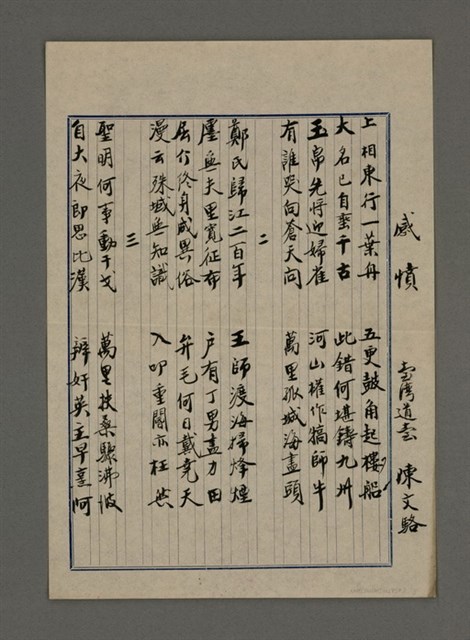 感憤
臺灣道臺 陳文騄
上相東行一葉舟 五更鼓角起樓船
大名已自蜚千古 此錯何堪鑄九州
玉帛先將迎婦雀 河山權作犒師牛
有誰哭向蒼天問 萬里孤城海盡頭
二
鄭氏歸江二百年 王師渡海掃烽煙
廛無夫里寬征布 戶有丁男盡力田
屈行終身咸異俗 弁毛何日戴堯天
漫云殊域無知識 入叩重閽亦枉然
三
聖明何事動干戈 萬里扶桑驟沸波
自大夜郎思比漢 辨奸英主早